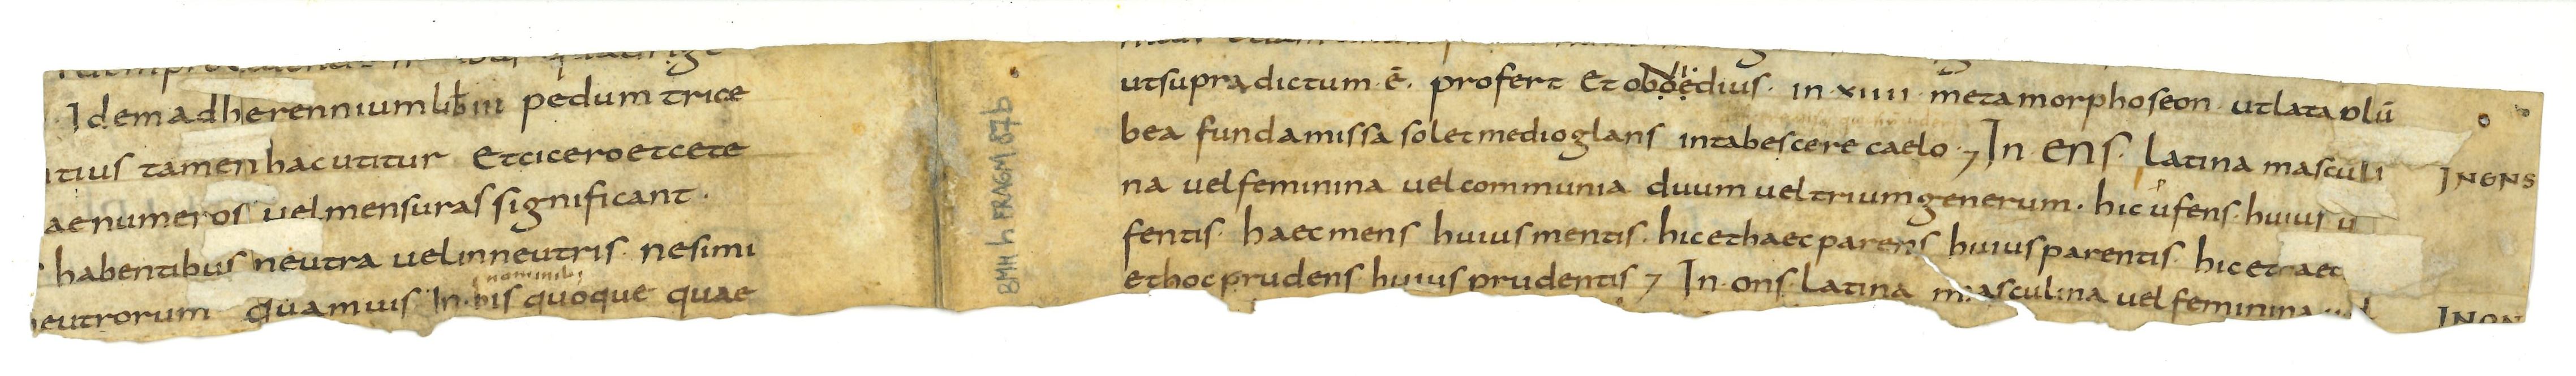 Idem adherennium lib̄ iii pedum trice
itius tamen hac utitur Et cicero et cete
ae numeros uel mensuras significant.
habentibus neutra uel in neutris. ne simi
nominib;
neutrorum quamuis In his quoque quae
BMH h FRAGM 87b
ut supra dictum. ē. profert Et oboedius. in xiiii metamorphoseon ut lata plū
bea funda missa solet medio glans intabescere caelo. In ens. latina masculi
INENS
na uel feminina uel communia duum uel trium generum. hic ufens. huius u
fentis. haec mens huius mentis. hic et haec parens huius parentis. hic et haec
et hoc prudens. huius prudentis In ons. latina masculina uel feminina uel
INON